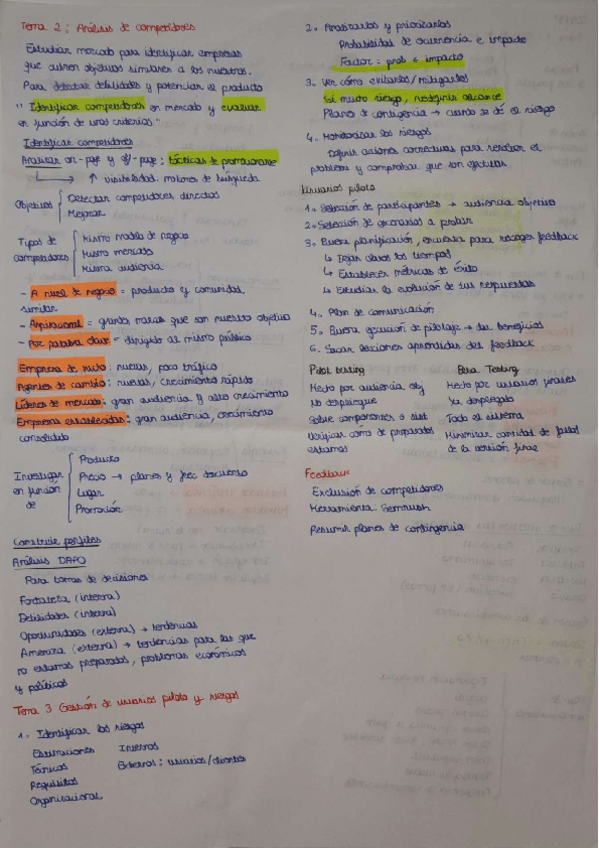 Tema 2: Análisis de competidores
Estudiar mercado para identificar empresas
que cubren objetivos similares a los nuestros.
Para detectar debilidades y potenciar el producto
" Identificar competidores en mercado y evaluar
en función de unos criterios "
Identificar competidores
Analizar on-page y off-page : tácticas de promocionarse
↑ visibilidad motores de búsqueda
Objetivos
Detectar competidores directos
Mejorar
Tipos de
competidores
Mismo modelo de negocio
Mismo mercado
Misma audiencia
- A nivel de negocio = producto y comunidad
similar
- Aspiracional = grandes marcas que son nuestro objetivo
- Por palabra clave = dirigido al mismo público
Empresa de nicho: nuevas, poco tráfico
Agentes de cambio: nuevas, crecimiento rápido
Líderes de mercado: gran audiencia y alto crecimiento
Empresa establecidas: gran audiencia, crecimiento
consolidado
Investigar
en función
de
Producto
Precio → planes y descuento
Lugar
Promoción
Construir perfiles
Análisis DAFO
Para tomas de decisiones
Fortaleza (interna)
Debilidades (interna)
Oportunidades (externa) → tendencias
Amenaza (externa) → tendencias para las que
no estamos preparados, problemas económicos
y políticos
Tema 3 Gestión de usuarios piloto y riesgos
1. Identificar los riesgos
Estimaciones Internos
Técnicos Externos: usuarios/clientes
Requisitos
Organizacional
2. Analizarlos y priorizarlos
Probabilidad de ocurrencia e impacto
Factor: prob * impacto
3. Ver cómo evitarlos/mitigarlos
Si mucho riesgo, redefinir alcance
Planes de contigencia → cuando se dé el riesgo
4. Monitorizar los riesgos
Definir acciones correctivas para resolver el
problema y comprobar que son efectivas.
Usuarios piloto
1. Selección de participantes → audiencia objetivo
2. Selección de escenarios a probar
3. Buena planificación, encuesta para recoger feedback
↳ Dejar claros los tiempos
↳ Establecer métricas de éxito
↳ Estudiar la evolución de sus respuestas
4. Plan de comunicación
5. Buena ejecución de pilotaje → beneficios
6. Sacar lecciones aprendidas del feedback
Pilot testing Beta Testing
Hecho por audiencia obj Hecho por usuarios finales
No despliegue Ya desplegado
Sobre componentes o sist Todo el sistema
Verificar como de preparados Minimizar cantidad de fallos
estamos de la versión final
Feedback
Exclusión de competidores
Herramienta Semrush
Resumir planes de contingencia